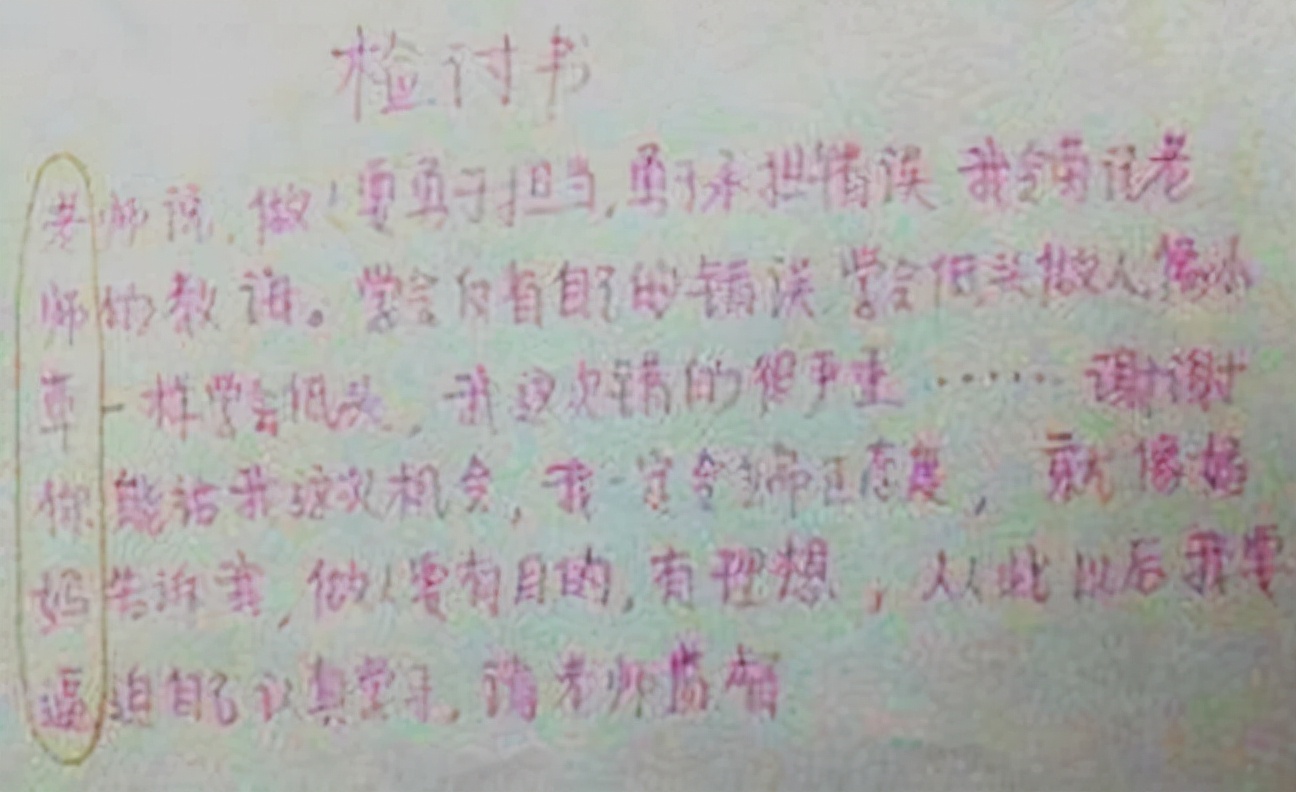 检讨书
老师说,做人要勇于担当,勇于承担错误 我会牢记老
师的教诲。学会反省自己的错误 学会低头做人,像小
草一样学会低头,我这次错的很严重……谢谢
你能给我这次机会,我一定会端正态度,就像妈
妈告诉我,做人要有目的,有理想,从此以后我要
逼迫自己认真学习,请老师监督